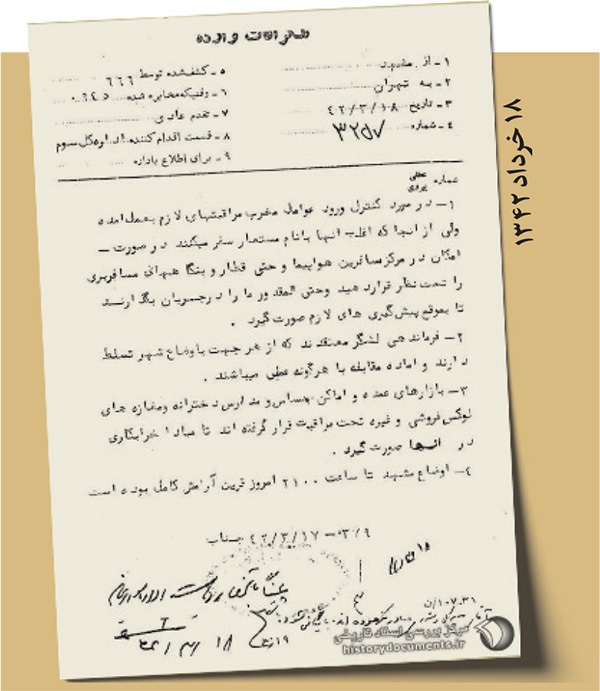 تلگرافات وارده
۱ـ از مشهد
۲ـ به تهران
۳ـ تاریخ ۴۲/۳/۱۸
۴ـ شماره ۳۲۵۷
۵ـ کشف‌شده توسط ۶۶۶
۶ـ وقتیکه مخابره شده ۰۶۴۵
۷ـ تقدم عادی
۸ـ قسمت اقدام کننده اداره کل سوم
۹ـ برای اطلاع باداره
شماره
۱ـ در مورد کنترل ورود عوامل مخرب مراقبتهای لازم بعمل آمده
ولی از آنجا که اغلب آنها بانام مستعار سفر میکنند در صورت ـ
امکان در مرکز مسافرین هواپیما و حتی قطار و بنگا ههای مسافربری
را تحت نظر قرار دهید وحتی المقدور ما را در جریان بگذارند
تا بموقع پیش‌گیری های لازم صورت گیرد .
۲ـ فرماندهی لشگر معتقدند که از هر جهت باوضاع شهر تسلط
دارند و آماده مقابله با هرگونه عملی میباشند .
۳ـ بازارهای عمده و اماکن حساس و مدارس دخترانه ومغازه های
لوکس فروشی و غیره تحت مراقبت قرار گرفته اند تا مبادا خرابکاری
در آنها صورت گیرد .
۴ـ اوضاع مشهد تا ساعت ۲۱۰۰ امروز قرین آرامش کامل بوده است
۳۲۹ ـ ۴۲/۳/۱۷ جناب
۱۸
مرکز بررسی اسناد تاریخی
historydocuments.ir
۱۸ خرداد ۱۳۴۲